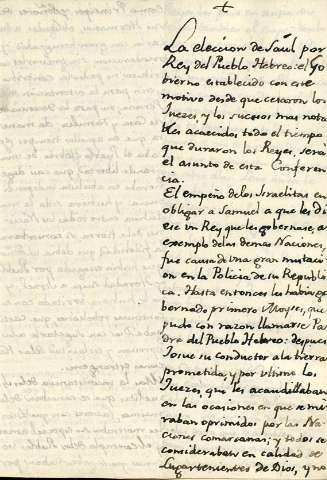 La eleccion de Saúl por
Rey del Pueblo Hebreo: el Go
bierno establecido con este
motivo desde que cesaron los
Juezes, y los sucesos mas nota
bles acaecidos todo el tiempo
que duraron los Reyes, será
el asunto de esta Conferen
cia.
El empeño de los Israelitas en
obligar a Samuel a que les di
ese un Rey que les gobernase, a
exemplo de las demas Naciones,
fue causa de una gran mutaci
on en la Policia de su Republi
ca. Hasta entonces les habia go
bernado primero Moyses, que
pudo con razon llamarse Pa
dre del Pueblo Hebreo: despues
Josue su conductor a la tierra
prometida, y por ultimo los
Juezes, que les acaudillaban
en las ocasiones en que se mi
raban oprimidos por las Na
ciones comarcanas; y todos se
consideraban en calidad de
Lugartenientes de Dios, y no